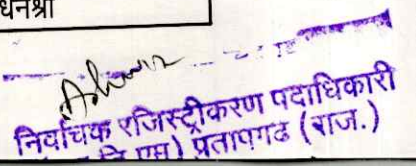 धनश्री
निर्वाचक रजिस्ट्रीकरण पदाधिकारी
प्रतापगढ (राज.)